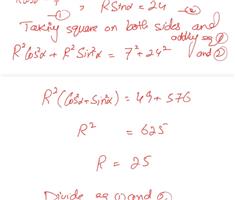 , R Sinα = 24
① ②
Taking square on both sides and
adding eq ①
R²Cos²α + R²Sin²α = 7² + 24² and ②
R²(Cos²α + Sin²α) = 49 + 576
R² = 625
R = 25
Divide eq ① and ②